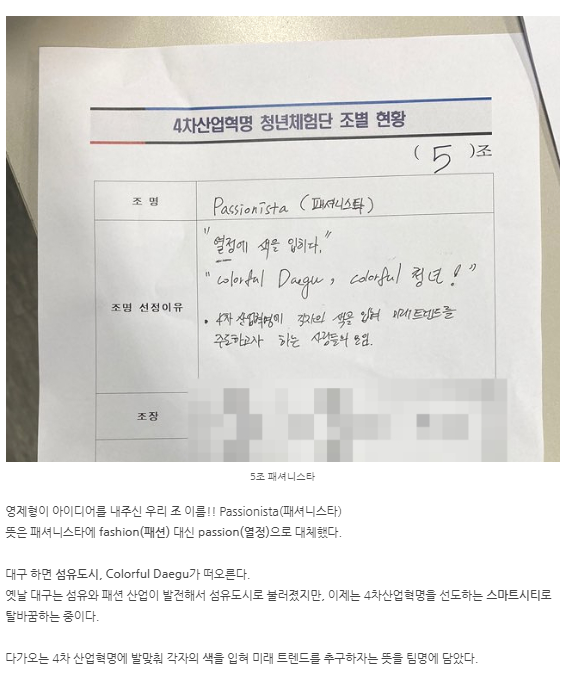 4차산업혁명 청년체험단 조별 현황
( 5 )조
조 명
Passionista (패셔니스타)
조명 선정이유
"열정에 색을 입히다."
"Colorful Daegu, colorful 청년!"
• 4차 산업혁명에 각자의 색을 입혀 미래트렌드를
주도하고자 하는 사람들의 모임.
조장
5조 패셔니스타
영제형이 아이디어를 내주신 우리 조 이름!! Passionista(패셔니스타)
뜻은 패셔니스타에 fashion(패션) 대신 passion(열정)으로 대체했다.
대구 하면 섬유도시, Colorful Daegu가 떠오른다.
옛날 대구는 섬유와 패션 산업이 발전해서 섬유도시로 불러졌지만, 이제는 4차산업혁명을 선도하는 스마트시티로
탈바꿈하는 중이다.
다가오는 4차 산업혁명에 발맞춰 각자의 색을 입혀 미래 트렌드를 추구하자는 뜻을 팀명에 담았다.